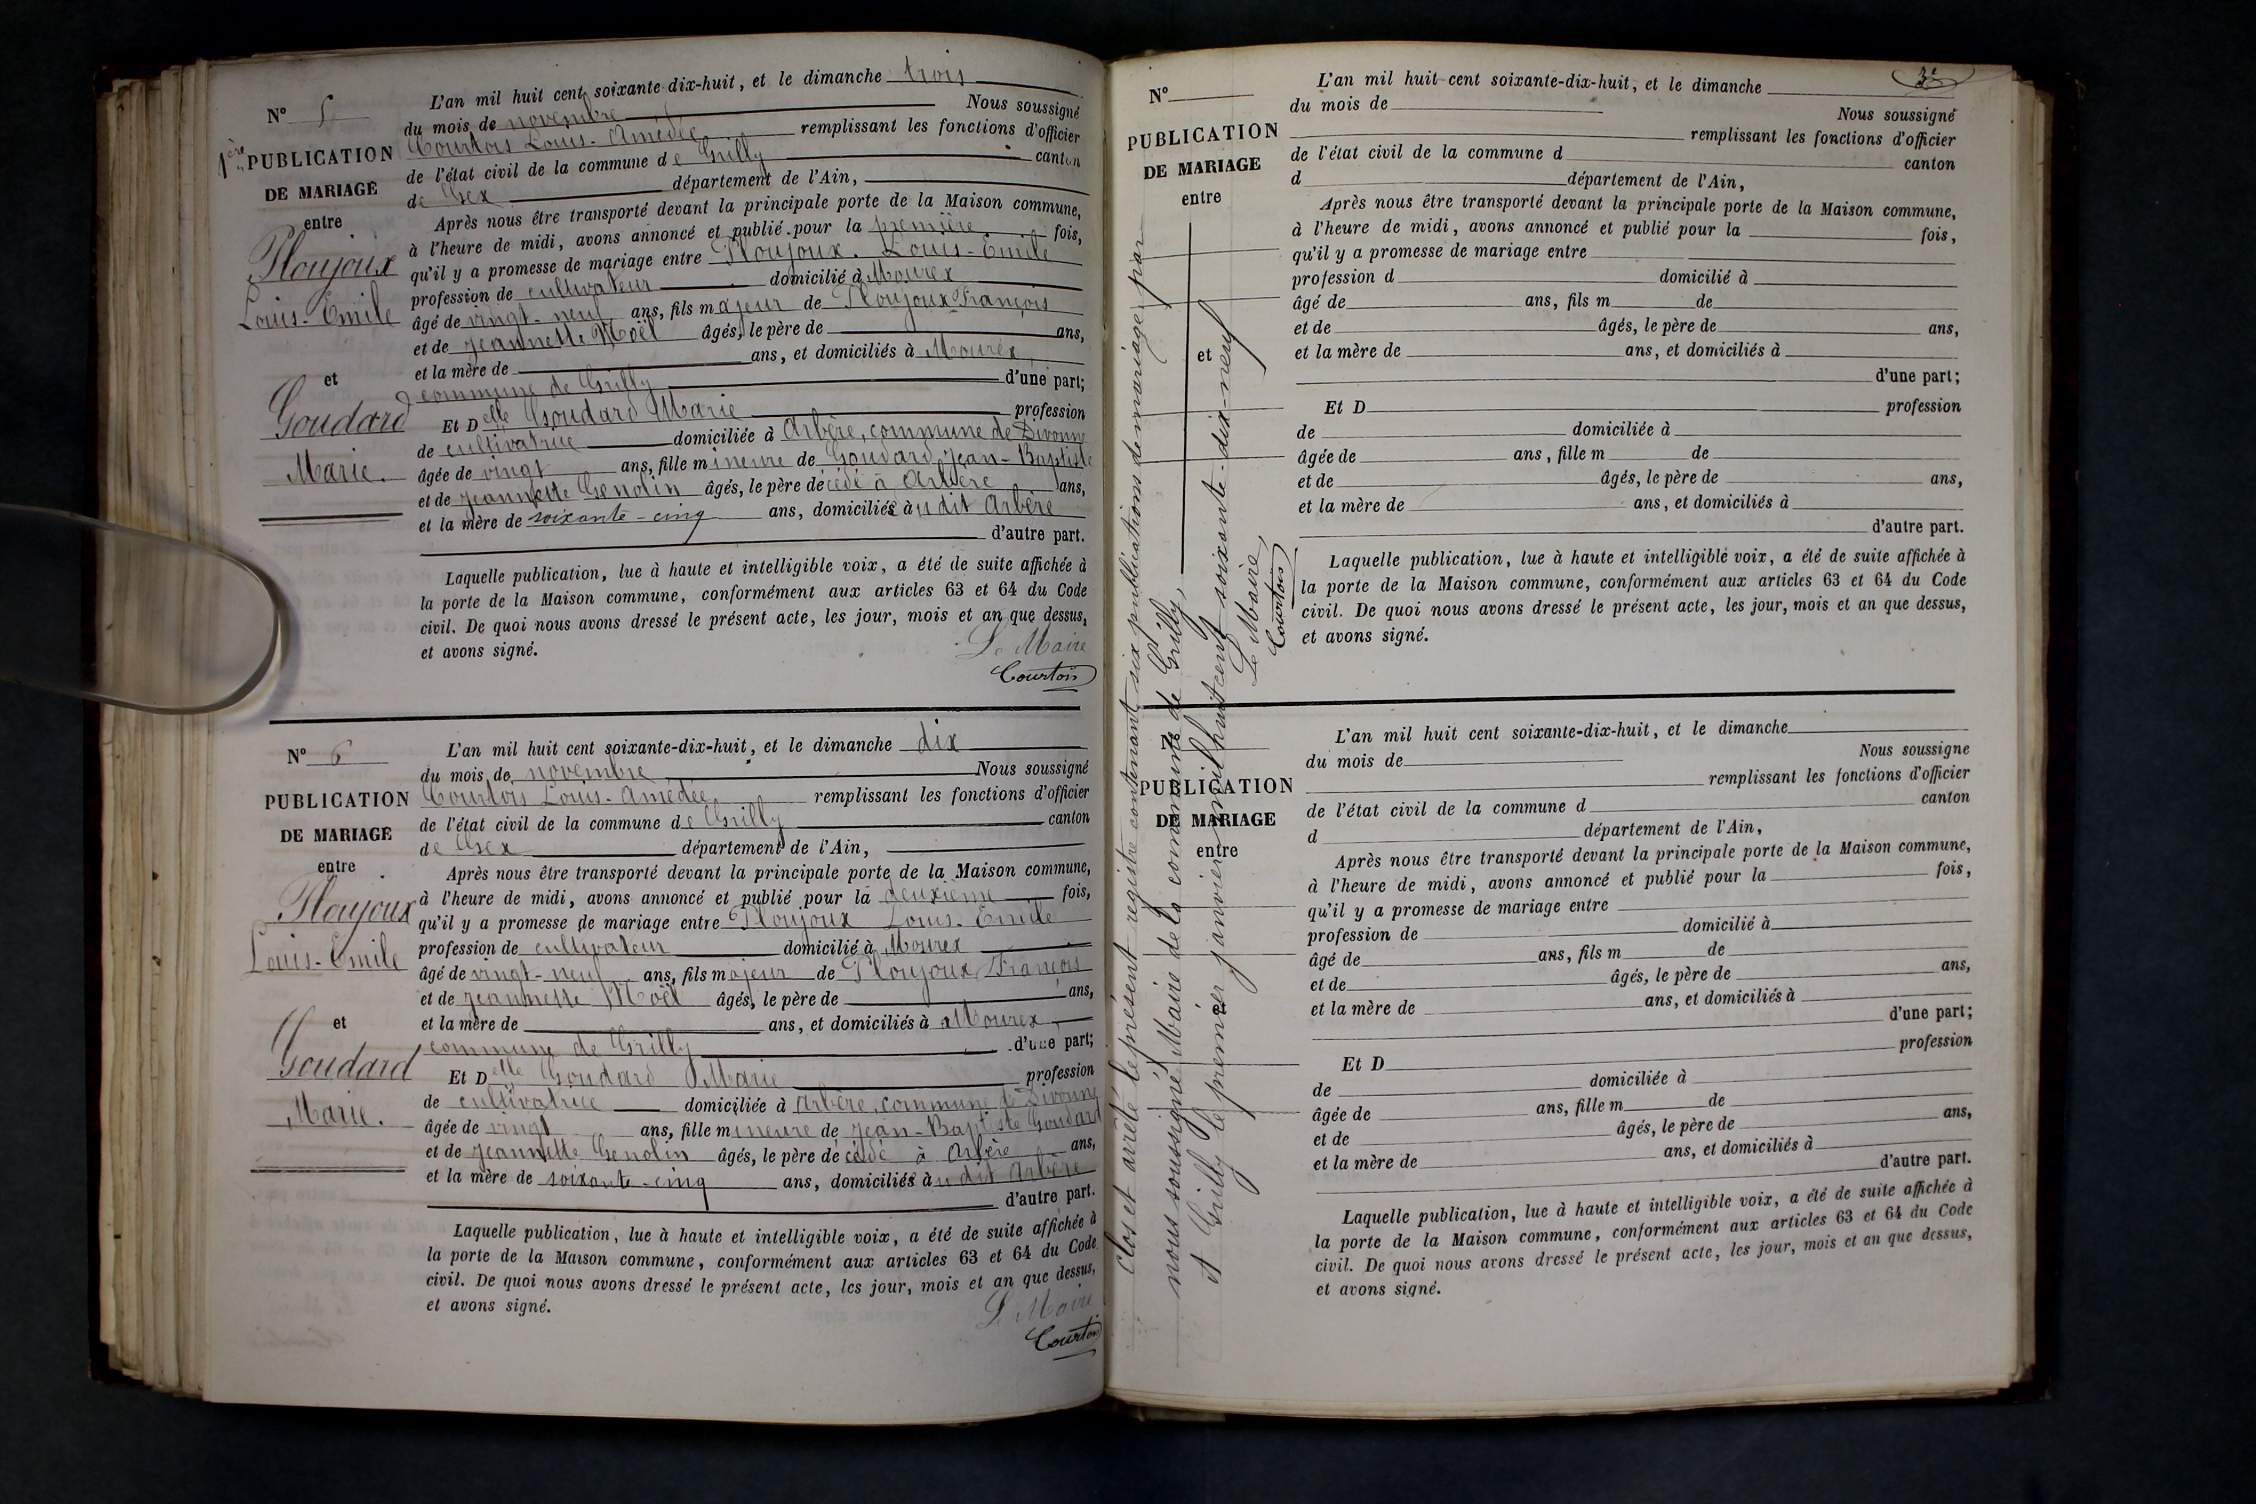 N° 5
1ère PUBLICATION
DE MARIAGE
entre
Ploujoux
Louis-Emile
et
Goudard
Marie.
L'an mil huit cent soixante-dix-huit, et le dimanche trois
du mois de novembre Nous soussigné
Courtois Louis-Amédée remplissant les fonctions d'officier
de l'état civil de la commune de Grilly canton
de Gex département de l'Ain,
Après nous être transporté devant la principale porte de la Maison commune,
à l'heure de midi, avons annoncé et publié pour la première fois,
qu'il y a promesse de mariage entre Ploujoux Louis-Emile
profession de cultivateur domicilié à Mourex
âgé de vingt-neuf ans, fils majeur de Ploujoux François
et de Jeannette Moël âgés, le père de ans,
et la mère de ans, et domiciliés à Mourex,
commune de Grilly d'une part;
Et Delle Goudard Marie profession
de cultivatrice domiciliée à Arbère, commune de Divonne
âgée de vingt ans, fille mineure de Goudard Jean-Baptiste
et de Jeannette Genolin âgés, le père décédé à Arbère ans,
et la mère de soixante-cinq ans, domiciliés audit Arbère
d'autre part.
Laquelle publication, lue à haute et intelligible voix, a été de suite affichée à
la porte de la Maison commune, conformément aux articles 63 et 64 du Code
civil. De quoi nous avons dressé le présent acte, les jour, mois et an que dessus,
et avons signé.
Le Maire
Courtois
N° 6
PUBLICATION
DE MARIAGE
entre
Ploujoux
Louis-Emile
et
Goudard
Marie.
L'an mil huit cent soixante-dix-huit, et le dimanche dix
du mois de novembre Nous soussigné
Courtois Louis-Amédée remplissant les fonctions d'officier
de l'état civil de la commune de Grilly canton
de Gex département de l'Ain,
Après nous être transporté devant la principale porte de la Maison commune,
à l'heure de midi, avons annoncé et publié pour la deuxième fois,
qu'il y a promesse de mariage entre Ploujoux Louis-Emile
profession de cultivateur domicilié à Mourex
âgé de vingt-neuf ans, fils majeur de Ploujoux François
et de Jeannette Moël âgés, le père de ans,
et la mère de ans, et domiciliés à Mourex,
commune de Grilly d'une part;
Et Delle Goudard Marie profession
de cultivatrice domiciliée à Arbère, commune de Divonne
âgée de vingt ans, fille mineure de Jean-Baptiste Goudard
et de Jeannette Genolin âgés, le père décédé à Arbère ans,
et la mère de soixante-cinq ans, domiciliés audit Arbère
d'autre part.
Laquelle publication, lue à haute et intelligible voix, a été de suite affichée à
la porte de la Maison commune, conformément aux articles 63 et 64 du Code
civil. De quoi nous avons dressé le présent acte, les jour, mois et an que dessus,
et avons signé.
Le Maire
Courtois
3e
N°
PUBLICATION
DE MARIAGE
entre
et
L'an mil huit cent soixante-dix-huit, et le dimanche
du mois de Nous soussigné
remplissant les fonctions d'officier
de l'état civil de la commune d canton
d département de l'Ain,
Après nous être transporté devant la principale porte de la Maison commune,
à l'heure de midi, avons annoncé et publié pour la fois,
qu'il y a promesse de mariage entre
profession d domicilié à
âgé de ans, fils m de
et de âgés, le père de ans,
et la mère de ans, et domiciliés à
d'une part;
Et D profession
de domiciliée à
âgée de ans, fille m de
et de âgés, le père de ans,
et la mère de ans, et domiciliés à
d'autre part.
Laquelle publication, lue à haute et intelligible voix, a été de suite affichée à
la porte de la Maison commune, conformément aux articles 63 et 64 du Code
civil. De quoi nous avons dressé le présent acte, les jour, mois et an que dessus,
et avons signé.
Clos et arrêté le présent registre contenant six publications de mariage, par
nous soussigné, Maire de la commune de Grilly,
et Grilly le premier janvier mil huit cent soixante-dix-neuf
Le Maire,
Courtois
N°
PUBLICATION
DE MARIAGE
entre
L'an mil huit cent soixante-dix-huit, et le dimanche
du mois de Nous soussigné
remplissant les fonctions d'officier
de l'état civil de la commune d canton
d département de l'Ain,
Après nous être transporté devant la principale porte de la Maison commune,
à l'heure de midi, avons annoncé et publié pour la fois,
qu'il y a promesse de mariage entre
profession de domicilié à
âgé de ans, fils m de
et de âgés, le père de ans,
et la mère de ans, et domiciliés à
d'une part;
Et D profession
de domiciliée à
âgée de ans, fille m de
et de âgés, le père de ans,
et la mère de ans, et domiciliés à
d'autre part.
Laquelle publication, lue à haute et intelligible voix, a été de suite affichée à
la porte de la Maison commune, conformément aux articles 63 et 64 du Code
civil. De quoi nous avons dressé le présent acte, les jour, mois et an que dessus,
et avons signé.